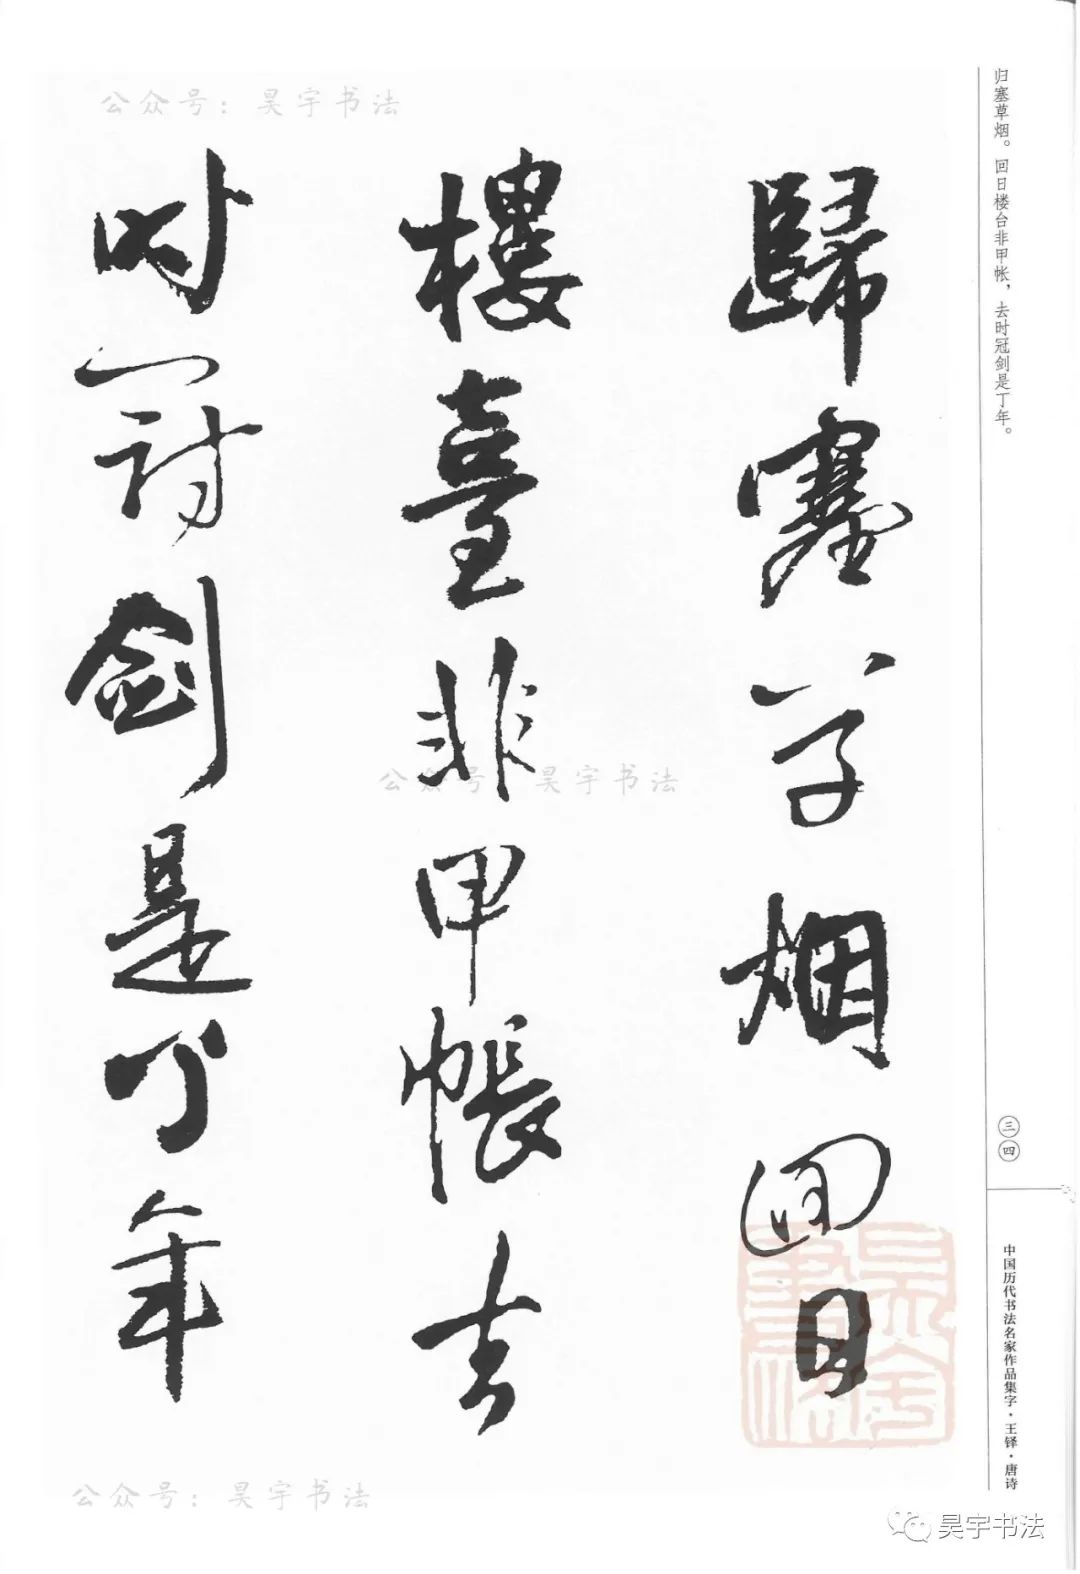 公众号：昊宇书法
归塞草烟。回日楼台非甲帐，去时冠剑是丁年。
歸塞草烟回日
樓臺非甲帳去
时冠剑是丁年
公众号：昊宇书法
三四
中国历代书法名家作品集字·王铎·唐诗
公众号：昊宇书法
昊宇书法